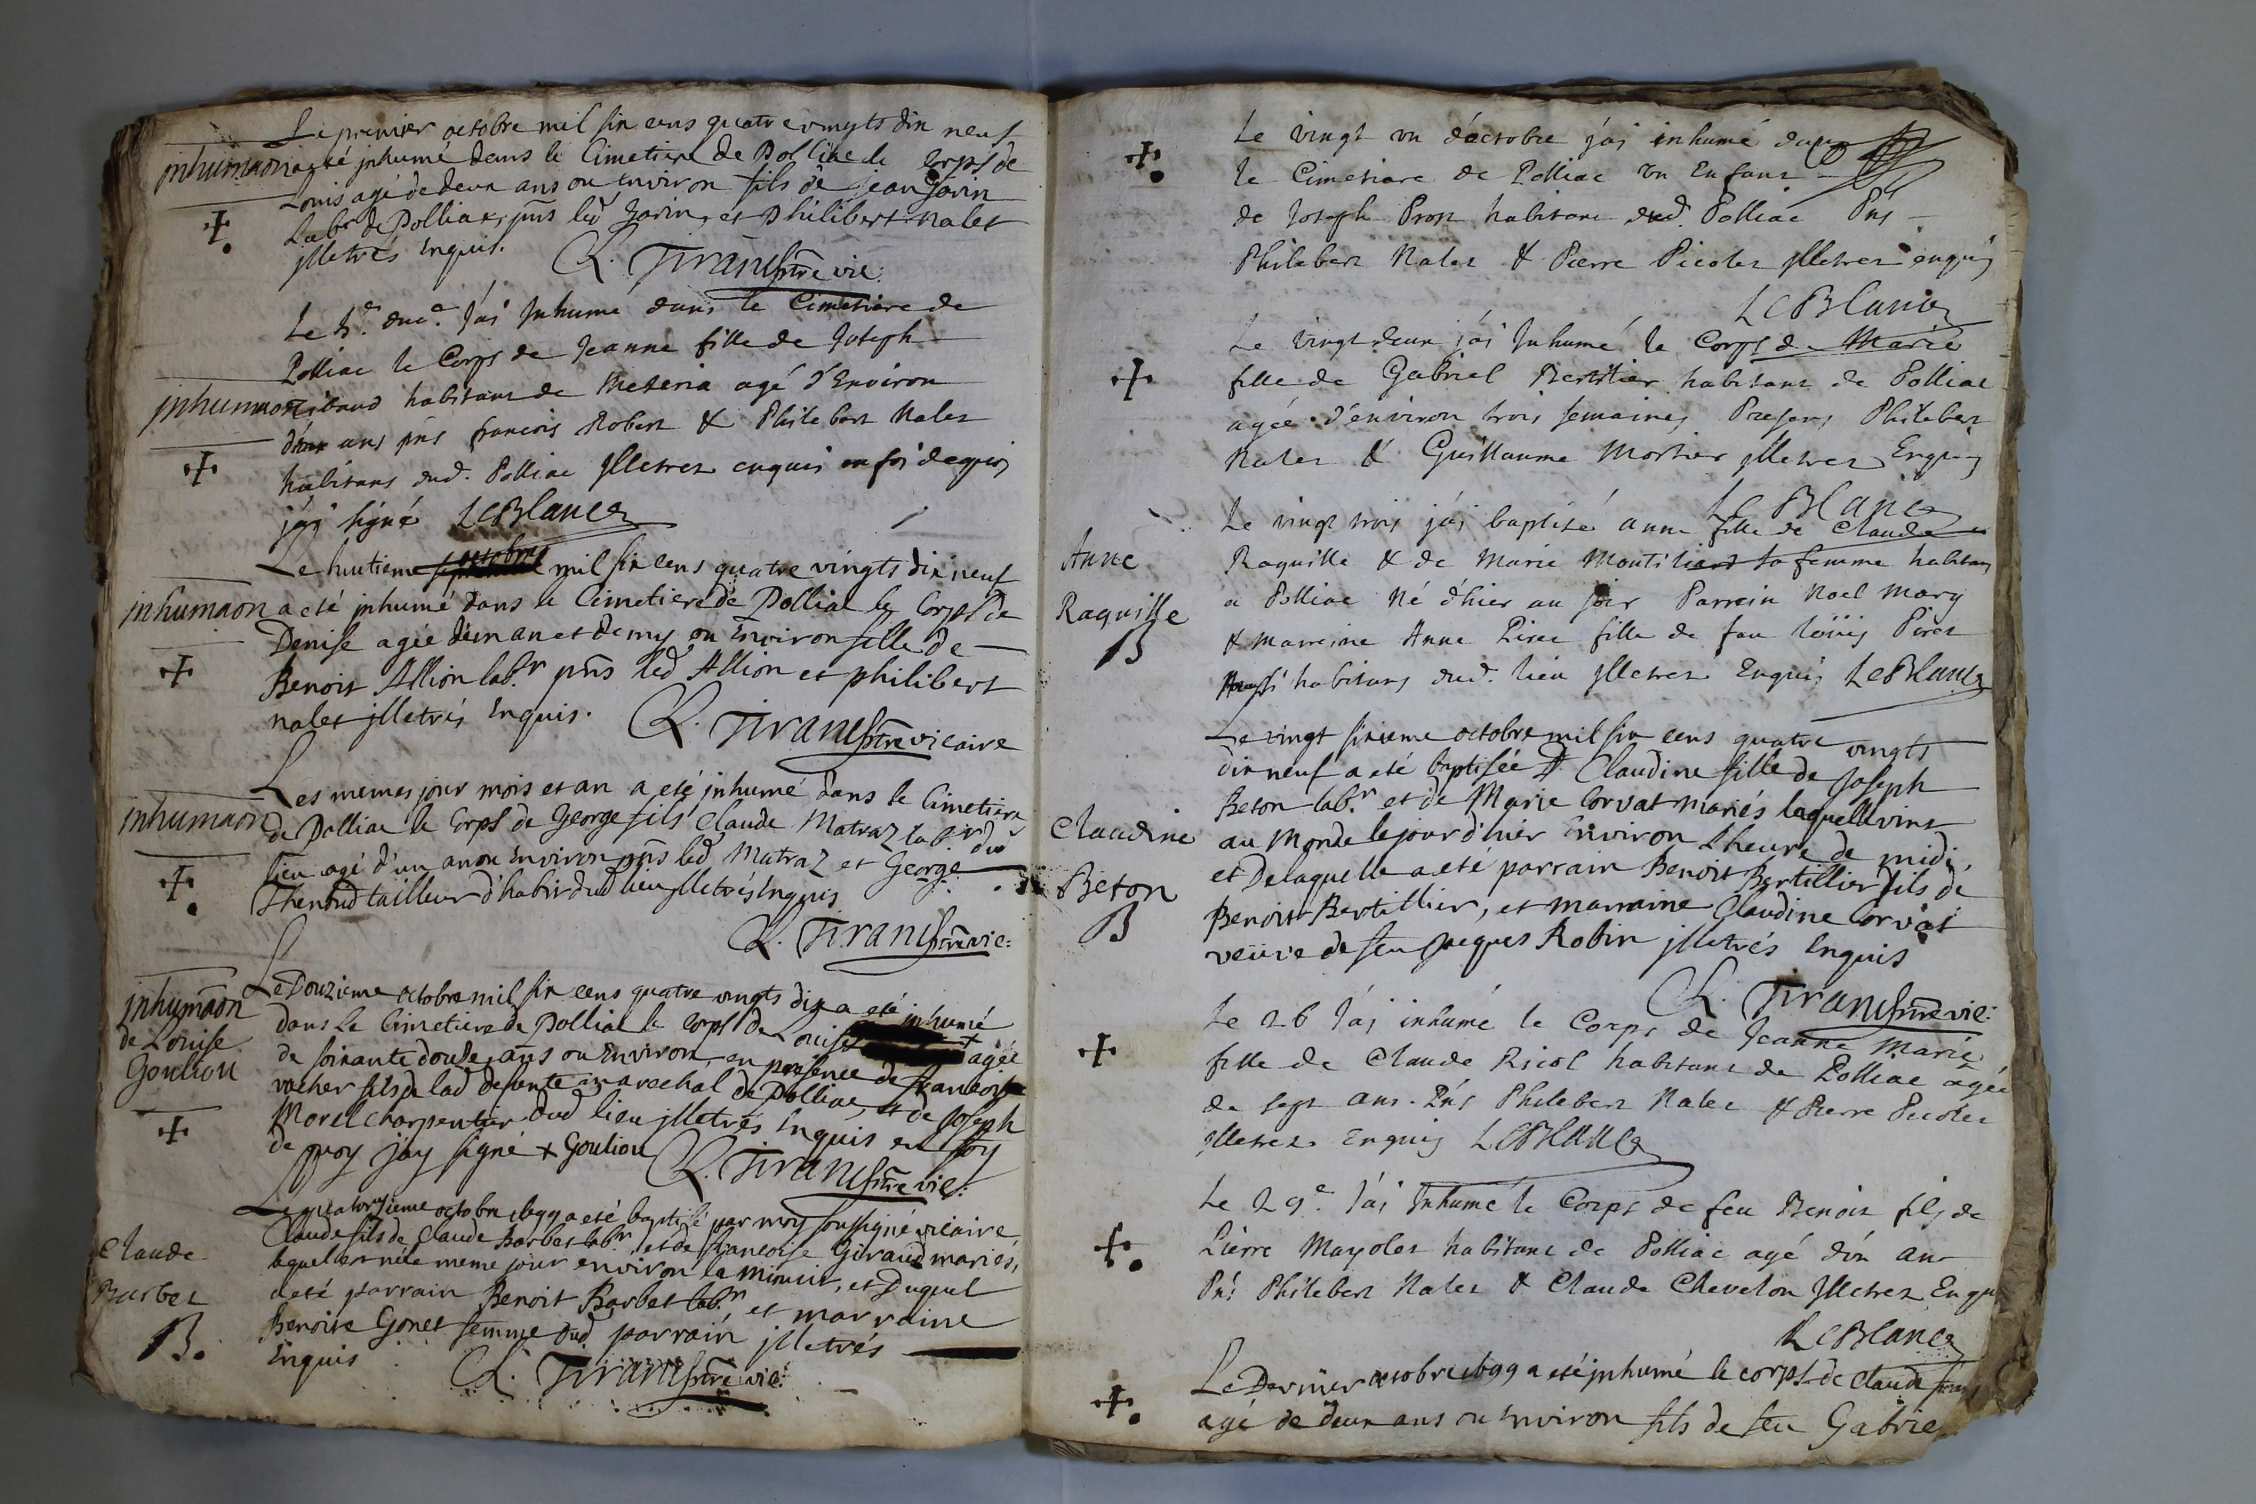 Le premier octobre mil six cens quatre vingts dix neuf
inhumaon a eté jnhumé dans le Cimetiere de Polliac le corps de
Louis agé de deux ans ou environ fils de jean Jovin
Labr de Polliac, pns led Jovin, et philibert nalet
jlletrés enquis. C. Tiran ptre vic:
Le 5e dud. J'ai Inhumé dans le Cimetiere de
Polliac le Corps de Jeanne fille de Joseph
inhumaon habitant de Mezeria agé d'Environ
ans pns francois Robert & Philebert Nalet
habitans dud. Polliac Jlletrez enquis en foi de quoi
j'ay signé LeBlanc
Le huitieme octobre mil six cens quatre vingts dix neuf
inhumaon a eté jnhumé dans le Cimetiere de Polliac le Corps de
Denise agée d'un an et demy ou Environ fille de
Benoit Allion labr. pns led Allion et philibert
nalet jlletrés Enquis. C. Tiran ptre vicaire
Les memes jour mois et an a eté jnhumé dans le Cimetiere
inhumaon de Polliac le Corps de George fils Claude Matraz labr. dud
lieu agé d'un an ou Environ pns led Matraz et George
Thenoud tailleur d'habit dud lieu jlletrés Enquis
C. Tiran ptre vic:
Le Douzieme octobre mil six cens quatre vingts dix a eté jnhumé
inhumaon dans le Cimetiere de Polliac le Corps de Louise + agée
de Louise de soixante douze ans ou Environ en presence de francois
Gouliou vocher fils de lad defunte marechal de Polliac, et de Joseph
Morel charpentier dud lieu jlletrés Enquis en foy
de quoy jay signé + Gouliou C. Tiran ptre vic:
Le quatorzieme octobre 1699 a eté baptisé par moy soussigné vicaire,
Claude fils de Claude Barbet labr. et de francoise Giraud mariés,
Claude lequel est né le meme jour environ la minuit, et Duquel
Barbet a eté parrain Benoit Barbet labr, et marraine
B. Benoite Gonet femme dud parrain jlletrés
Enquis C. Tiran ptre vic:
Le vingt un d'octobre j'ai inhumé dans
le Cimetiere de Polliac un Enfant
de Joseph Prost habitant dud. Polliac Pns
Philebert Nalet & Pierre Picolet Jlletrez enquis
LeBlanc
Le vingt deux j'ai Inhumé le Corps de Marie
fille de Gabriel Bertilier habitant de Polliac
agée d'environ trois semaines Presens Philebert
Nalet & Guillaume Mortier jlletrez Enquis
LeBlanc
Le vingt trois j'ai baptisé anne fille de Claude
Anne Raquille & de Marie Moutiliard sa femme habitans
Raquille a Polliac Né d'hier au soir Parrein Noel Mary
B & marreine Anne Piret fille de feu Loüis Piret
habitans dud. lieu Jlletrez Enquis LeBlanc
Le vingt sixieme octobre mil six cens quatre vingts
dix neuf a eté baptisée Claudine fille de Joseph
Beton labr. et de Marie Corvat mariés laquelle vint
Claudine au Monde le jour d'hier Environ L'heure de midi,
Beton et De laquelle a eté parrain Benoit Bertillier fils de
B Benoit Bertillier, et marraine Claudine Corvat
veüve de feu Jacques Robin jlletrés Enquis
C. Tiran ptre vic:
Le 26 J'ai inhumé le Corps de Jeanne Marie
fille de Claude Ricol habitant de Polliac agée
de sept ans. Pns Philebert Nalet & Pierre Picolet
Jlletrez Enquis LeBlanc
Le 29e J'ai Inhumé le Corps de feu Benoit fils de
Pierre Mayolet habitant de Polliac agé d'un an
Pns Philebert Nalet & Claude Chevelon Jlletrez Enqu
LeBlanc
Le Dernier octobre 1699 a eté jnhumé le corps de Claude
agé de deux ans ou Environ fils de feu Gabrie